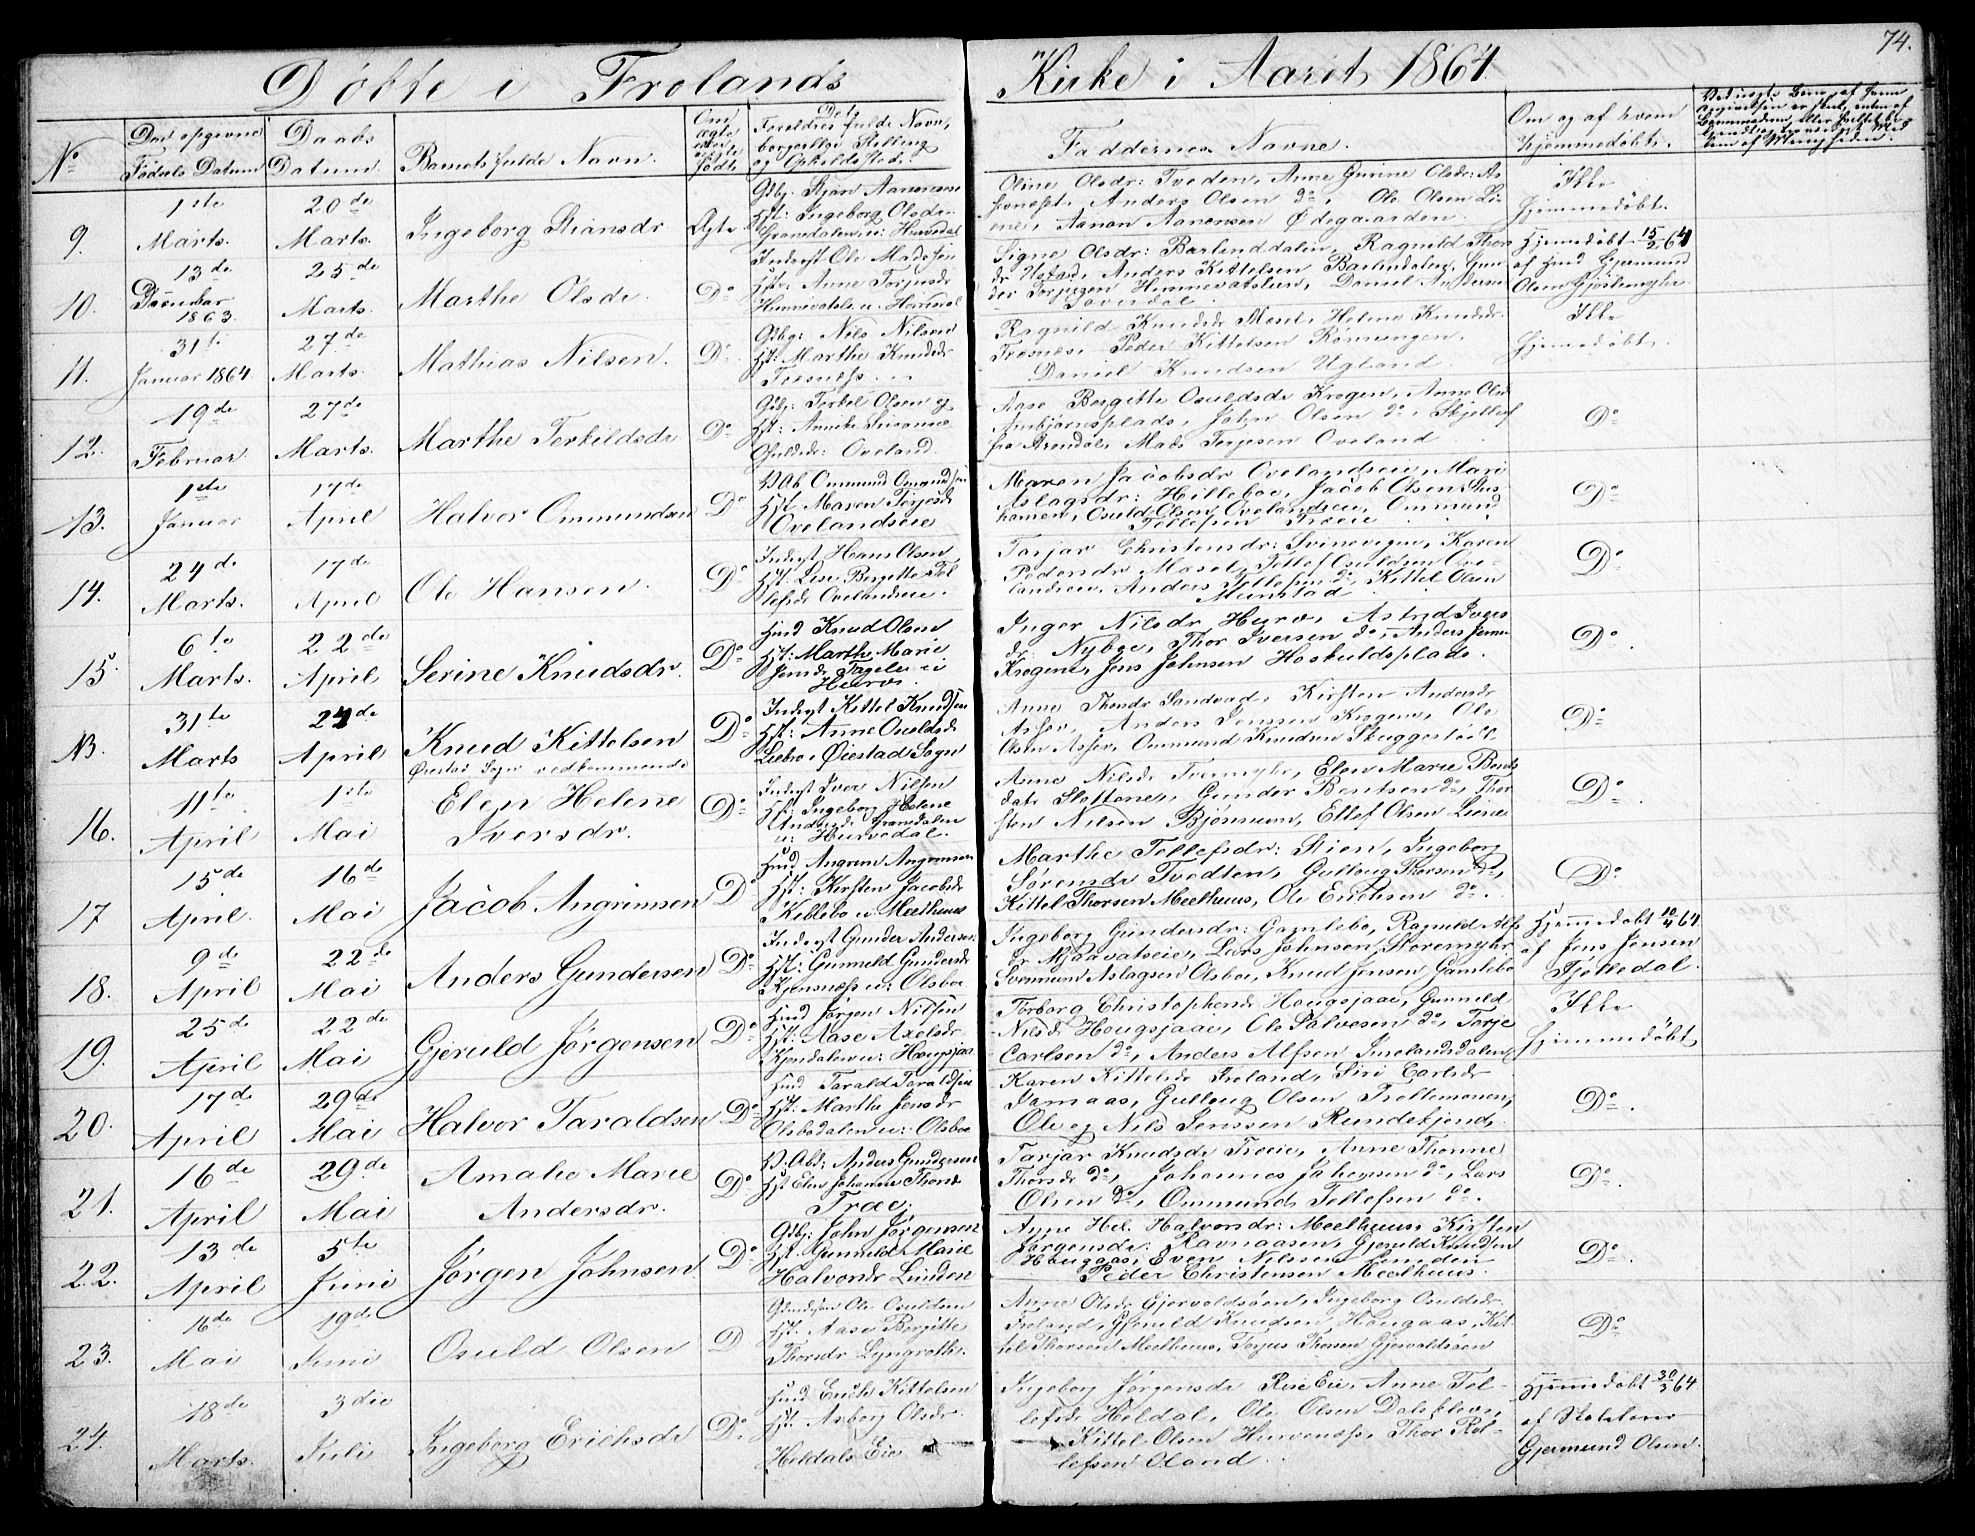 74.
Døbte i Frolands Kirke i Aaret 1864
No
Den opgivne
Fødsels Datum
Daabs
Datum.
Barnets fulde Navn.
Om
ægte
eller
uægte
født
Dets
Forældres fulde Navn,
borgerlige Stilling
og Opholdssted.
Faddernes Navne.
Om og af hvem
hjemmedøbt.
9.
1ste
Marts.
20de
Marts.
Ingeborg Stiansdr
Ægte
Gbg. Stian Aanonsen
Hst: Ingeborg Olsdr.
Grandalen u: Hurvedal
Oline Olsdr: Tveden, Anne Gurine Olsdr:
Anders Olsen do, Ole Olsen
Aanon Aanonsen Ødegaarden.
Ikke
hjemmedøbt.
10.
13de
December
1863.
25de
Marts.
Marthe Olsdr.
Do
Inderst Ole Madssen
Hst: Anne Torjusdr
Himmevatslien u:
Signe Olsdr: Barlinddalen, Ragnild Thors
dr Ufstad, Anders Kittelsen Barlindalen, Gun
der Torjusen Himmevatslien, Daniel Anderse
Hjemedøbt 15/2 64
af Huusmd Gjermund
Olsen Gjøstemyhr
11.
31te
Januar 1864.
27de
Marts.
Mathias Nilsen.
Do
Gbg: Nils Nilsen
Hst: Marthe Knudsdr
Tresnæss.
Ragnild Knudsdr Moset, Helene Knudsdr.
Tresnæs, Peder Kittelsen Rønningen,
Daniel Knudsen Ugland.
Ikke
hjemmedøbt.
12.
19de
Februar.
27de
Marts.
Marthe Terkildsdr
Do
Gbg: Terkel Olsen og
Hst: Annike Susanne
Osuldsdr: Oveland.
Aase Bergitte Osuldsdr Krogen, Anne Olsdr
Ambjørnsplads, John Olsen do, Skjellef
fra Arendal, Mads Terjesen Oveland
Do
13.
1ste
Januar
17de
April
Halvor Ommundsen
Do
P. Ab Ommund Omundsen
Hst. Maren Terjesdr
Ovelandseie
Maren Jacobsdr Ovelandseie, Mari
Aslagsdr: Hilleboe, Jacob Olsen
Osuld Olsen Ovelandseie, Ommund
Tellefsen Træeie
Do
14.
24de
Marts.
17de
April
Ole Hansen.
Do
Inderst Hans Olsen
Hst. Lise Bergitte Tel
lefsdr Ovelandseie.
Tarjær Christensdr: Svinevigen, Karen
Pedersdr Moset, Tellef Osuldsen Ove-
landseie, Anders Tellefsen do, Kittel Olsen
Munstad
Do
15.
6te
Marts.
22de
April
Serine Knudsdr.
Do
Hmd Knud Olsen
Hst: Marthe Marie
Jensdr
Hurv.
Inger Nilsdr Hurv, Astrid Ivers
dr. Nyboe, Thor Iversen do, Anders Jensen
Krogene, Jens Johnsen Haskuldsplads.
Do
NB.
31te
Marts
24de
April
Knud Kittelsen
Øiestad Sogn vedkommende
Do
Inderst Kittel Knudsen
Hst: Anne Osuldsdr
Liebro i Øiestad Sogn
Anne Thordr Sandvad, Kirsten Andersdr
Asser, Anders Jenssen Krogene, Ole
Olsen Asser, Ommund Knudsen Skuggestøel
Do
16.
11te
April
1ste
Mai
Elen Helene
Iversdr.
Do
Inderst Iver Nilsen
Hst: Ingeborg Helene
Andersdr. Grandalen
u: Hurvedal.
Anne Nilsdr Tvermyhr, Elen Marie Bents
datr Slottene, Gunder Bentsen do, Thor
sten Nilsen Bjørnum, Ellef Olsen Liene
Do
17
15de
April.
16de
Mai
Jacob Angrimsen
Do
Hmd Angrim Angrimsen
Hst: Kirsten Jacobsdr
Kiblebo u. Meelhuus
Marthe Tellefsdr: Stien, Ingeborg
Sørensdr Tvedten, Gulloug Thorsen do,
Kittel Thorsen Meelhuus, Ole Erichsen do.
Do
18.
9de
April
22de
Mai
Anders Gundersen
Do
Inderst Gunder Andersen
Hst: Gunneld Gundersdr
Kjensnæss u: Olsboe
Ingeborg Gundersdr: Gamlebo, Ragnild Alfs
dr Mjaavatseie, Lars Johnsen Storemyhr
Svenmund Aslagsen Olsboe, Knud Jensen Gamlebo
Hjemedøbt 10/4 64
af Jens Jensen
Fjelledal.
19.
25de
April
22de
Mai
Gjeruld Jørgensen
Do
Hmd Jørgen Nilsen
Hst: Aase Axelsdr
Kjendalen u: Hougsjaa
Torborg Christophersdr Hougsjaae, Gunneld
Nilsdr Hougsjaae, Ole Salvesen do, Terje
Carlsen do, Anders Alfsen Imelandsdalen,
Ikke
hjemmedøbt
20.
17de
April
29de
Mai
Halvor Taraldsen
Do
Hmd Tarald Taraldsen
Hst: Marthe Jensdr
Olsbodalen u: Olsboe
Karen Kittelsdr Froland, Siri Carlsdr
Jomaas, Gulloug Olsen Trettemonen,
Ole og Nils Jenssen Rundekjend.
Do.
21.
16de
April
29de
Mai
Amalie Marie
Andersdr.
Do
P. Abd: Anders Gundersen
Hst Elen Johanne Thorsdr
Træe,
Tarjær Knudsdr Træeie, Anne Thonne
Thorsdr do, Johannes Jahansen do, Lars
Olsen do, Ommund Tellefsen do.
Do.
22.
13de
April
5te
Juni
Jørgen Johnsen
Do
Gbg: John Jørgensen
Hst. Gunneld Marie
Halvorsdr Lunden
Anne Hel. Halvorsdr: Meelhuus Kirsten
Jørgensdr: Ravnaasen, Gjeruld Knudsen
Hougaas, Even Nilssen Lunden
Peder Christensen Meelhuus.
Do
23.
16de
Mai
19de
Juni
Osuld Olsen
D
Ole Osuldsen
Hst. Aase Bergitte
Thorsdr Lyngroth.
Anne Olsdr Gjervoldsøen, Ingeborg Osuldsdr.
Froland, Gjeruld Knudsen, Hougaas, Kit-
tel Thorsen Meelhuus, Torjus Thorsen Gjervoldsøen
Do
24.
18de
Marts.
3die
Juli
Ingeborg Erichsdr
Do
Hmd Erich Kittelsen
Hst. Asborg Olsdr.
Heldals Eie
Ingeborg Jørgensdr Rise Eie, Anne Tel-
lefsdr Heldal, Ole Olsen Dalekleev,
Kittel Olsen Hurvenæss, Thor Rol-
lefsen Oland.
Hjemedøbt 30/3 64
af Skolelærer
Gjermund Olsen.